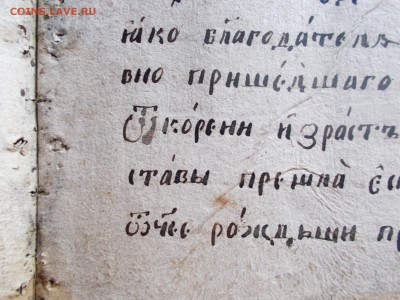 COINS.LAVE.RU
ꙗко благода́тель
вно прише́дшаго
Ѿ ко́рени и҆зра́стъ
ста́вы прешла̀ є҆с
ѿче́е ро́ждьши пр